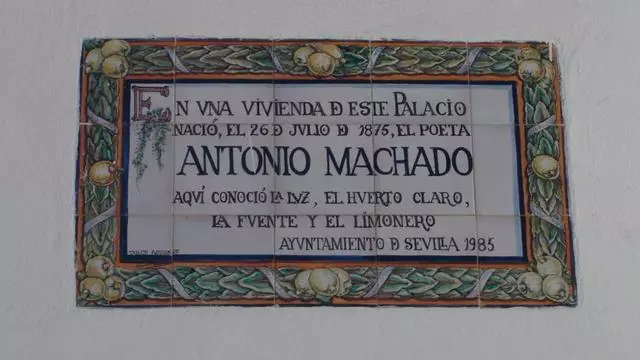 EN VNA VIVIENDA D ESTE PALACIO
NACIÓ, EL 26 D JULIO D 1875, EL POETA
ANTONIO MACHADO
AQVÍ CONOCIÓ LA LVZ, EL HVERTO CLARO,
LA FVENTE Y EL LIMONERO
AYVNTAMIENTO D SEVILLA 1985